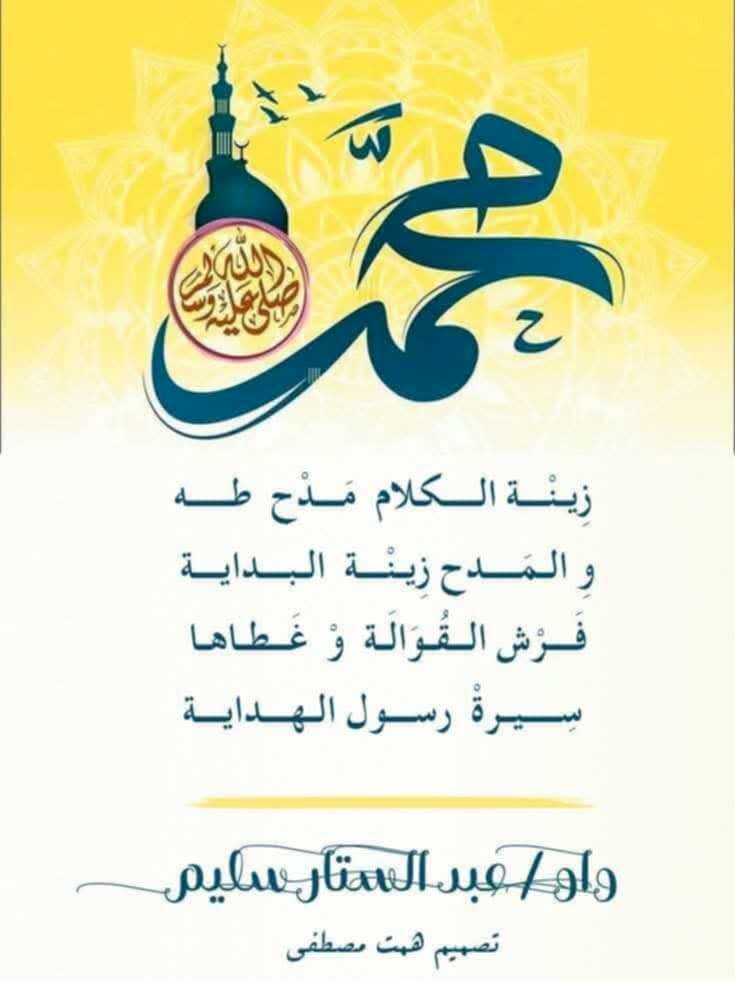 محمد
صلى الله عليه وسلم
زِينْة الكلام مَدْح طه
وِ المَدح زِينْة البداية
فَرْش القُوَالَة وْ غَطاها
سِيرةْ رسول الهداية
واو/عبد الستار سليم
تصميم همت مصطفى